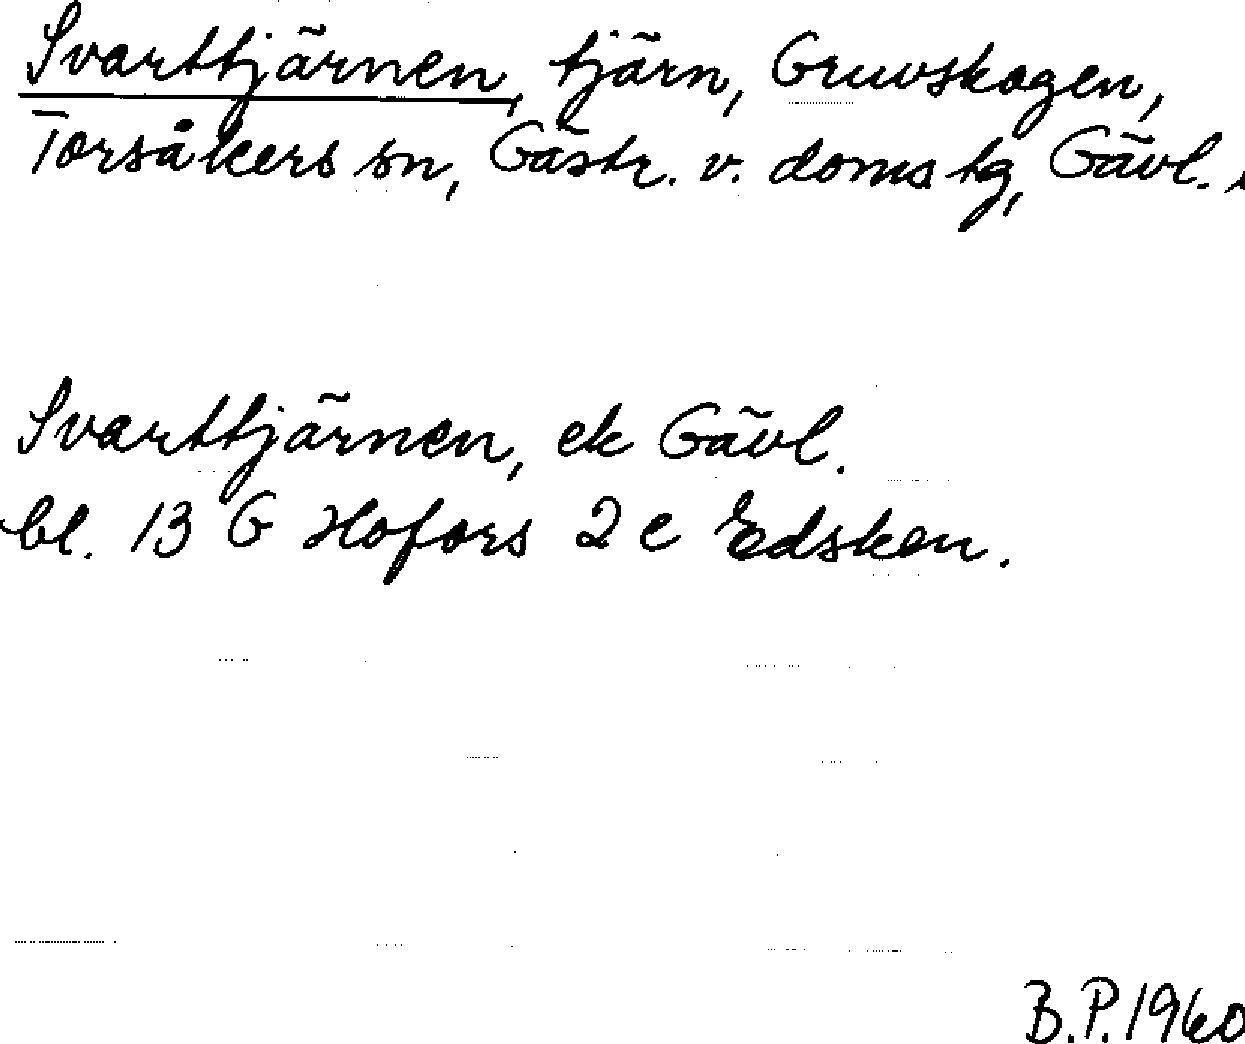 Svarttjärnen, tjärn, Gruvskogen,
Torsåkers sn, Gästr. v. domstg, Gävl.
Svarttjärnen, ek Gävl.
bl. 13 G Hofors 2 e Edsken.
B.P. 1960